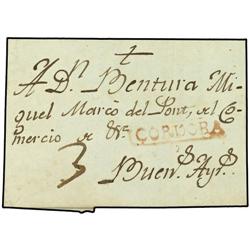 A D.ⁿ Bentura Mi-
guel Marcó del Pont, del Co-
mercio de
CORDOBA
3 Buen.ˢ Ay.ˢ